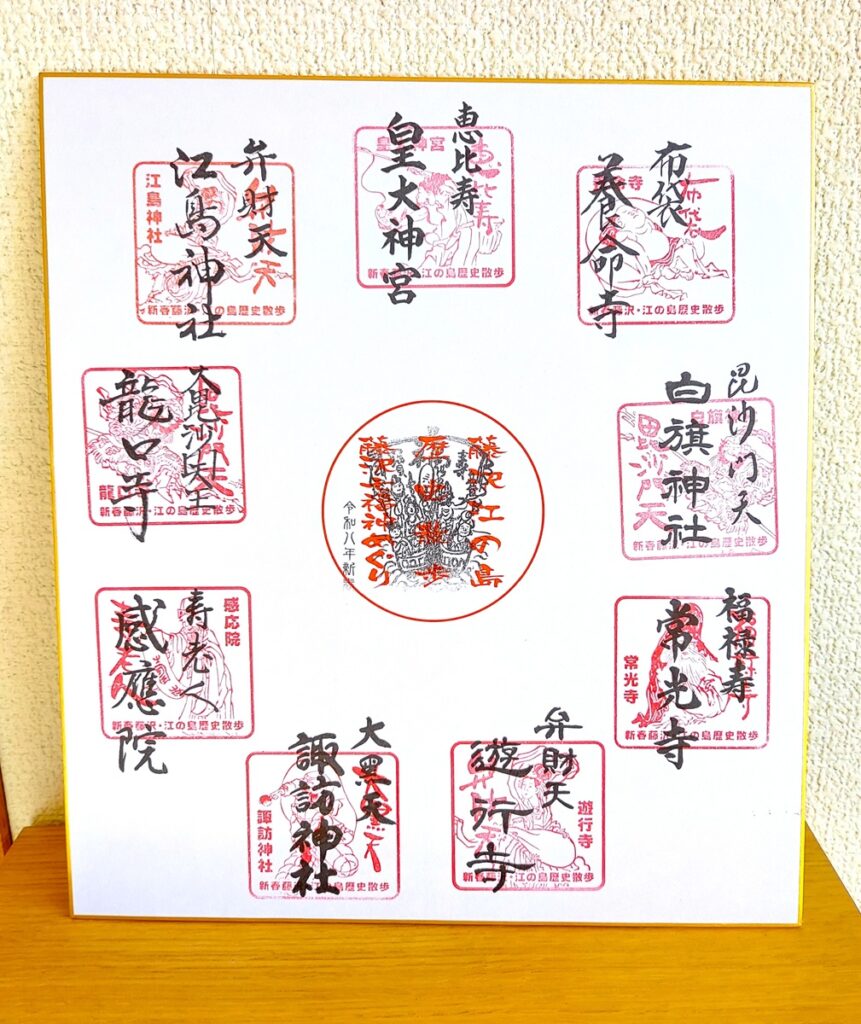 恵比寿
皇大神宮
皇大神宮
恵比寿
新春藤沢・江の島歴史散歩
布袋
養命寺
布袋
新春藤沢・江の島歴史散歩
毘沙門天
白旗神社
白旗神社
毘沙門天
新春藤沢・江の島歴史散歩
福禄寿
常光寺
常光寺
新春藤沢・江の島歴史散歩
弁財天
遊行寺
遊行寺
新春藤沢・江の島歴史散歩
大黒天
諏訪神社
諏訪神社
新春藤沢・江の島歴史散歩
寿老人
感應院
感応院
新春藤沢・江の島歴史散歩
大毘沙門天王
龍口寺
新春藤沢・江の島歴史散歩
弁財天
江島神社
江島神社
新春藤沢・江の島歴史散歩
藤沢江の島
歴史散歩
藤沢七福神めぐり
令和八年新春